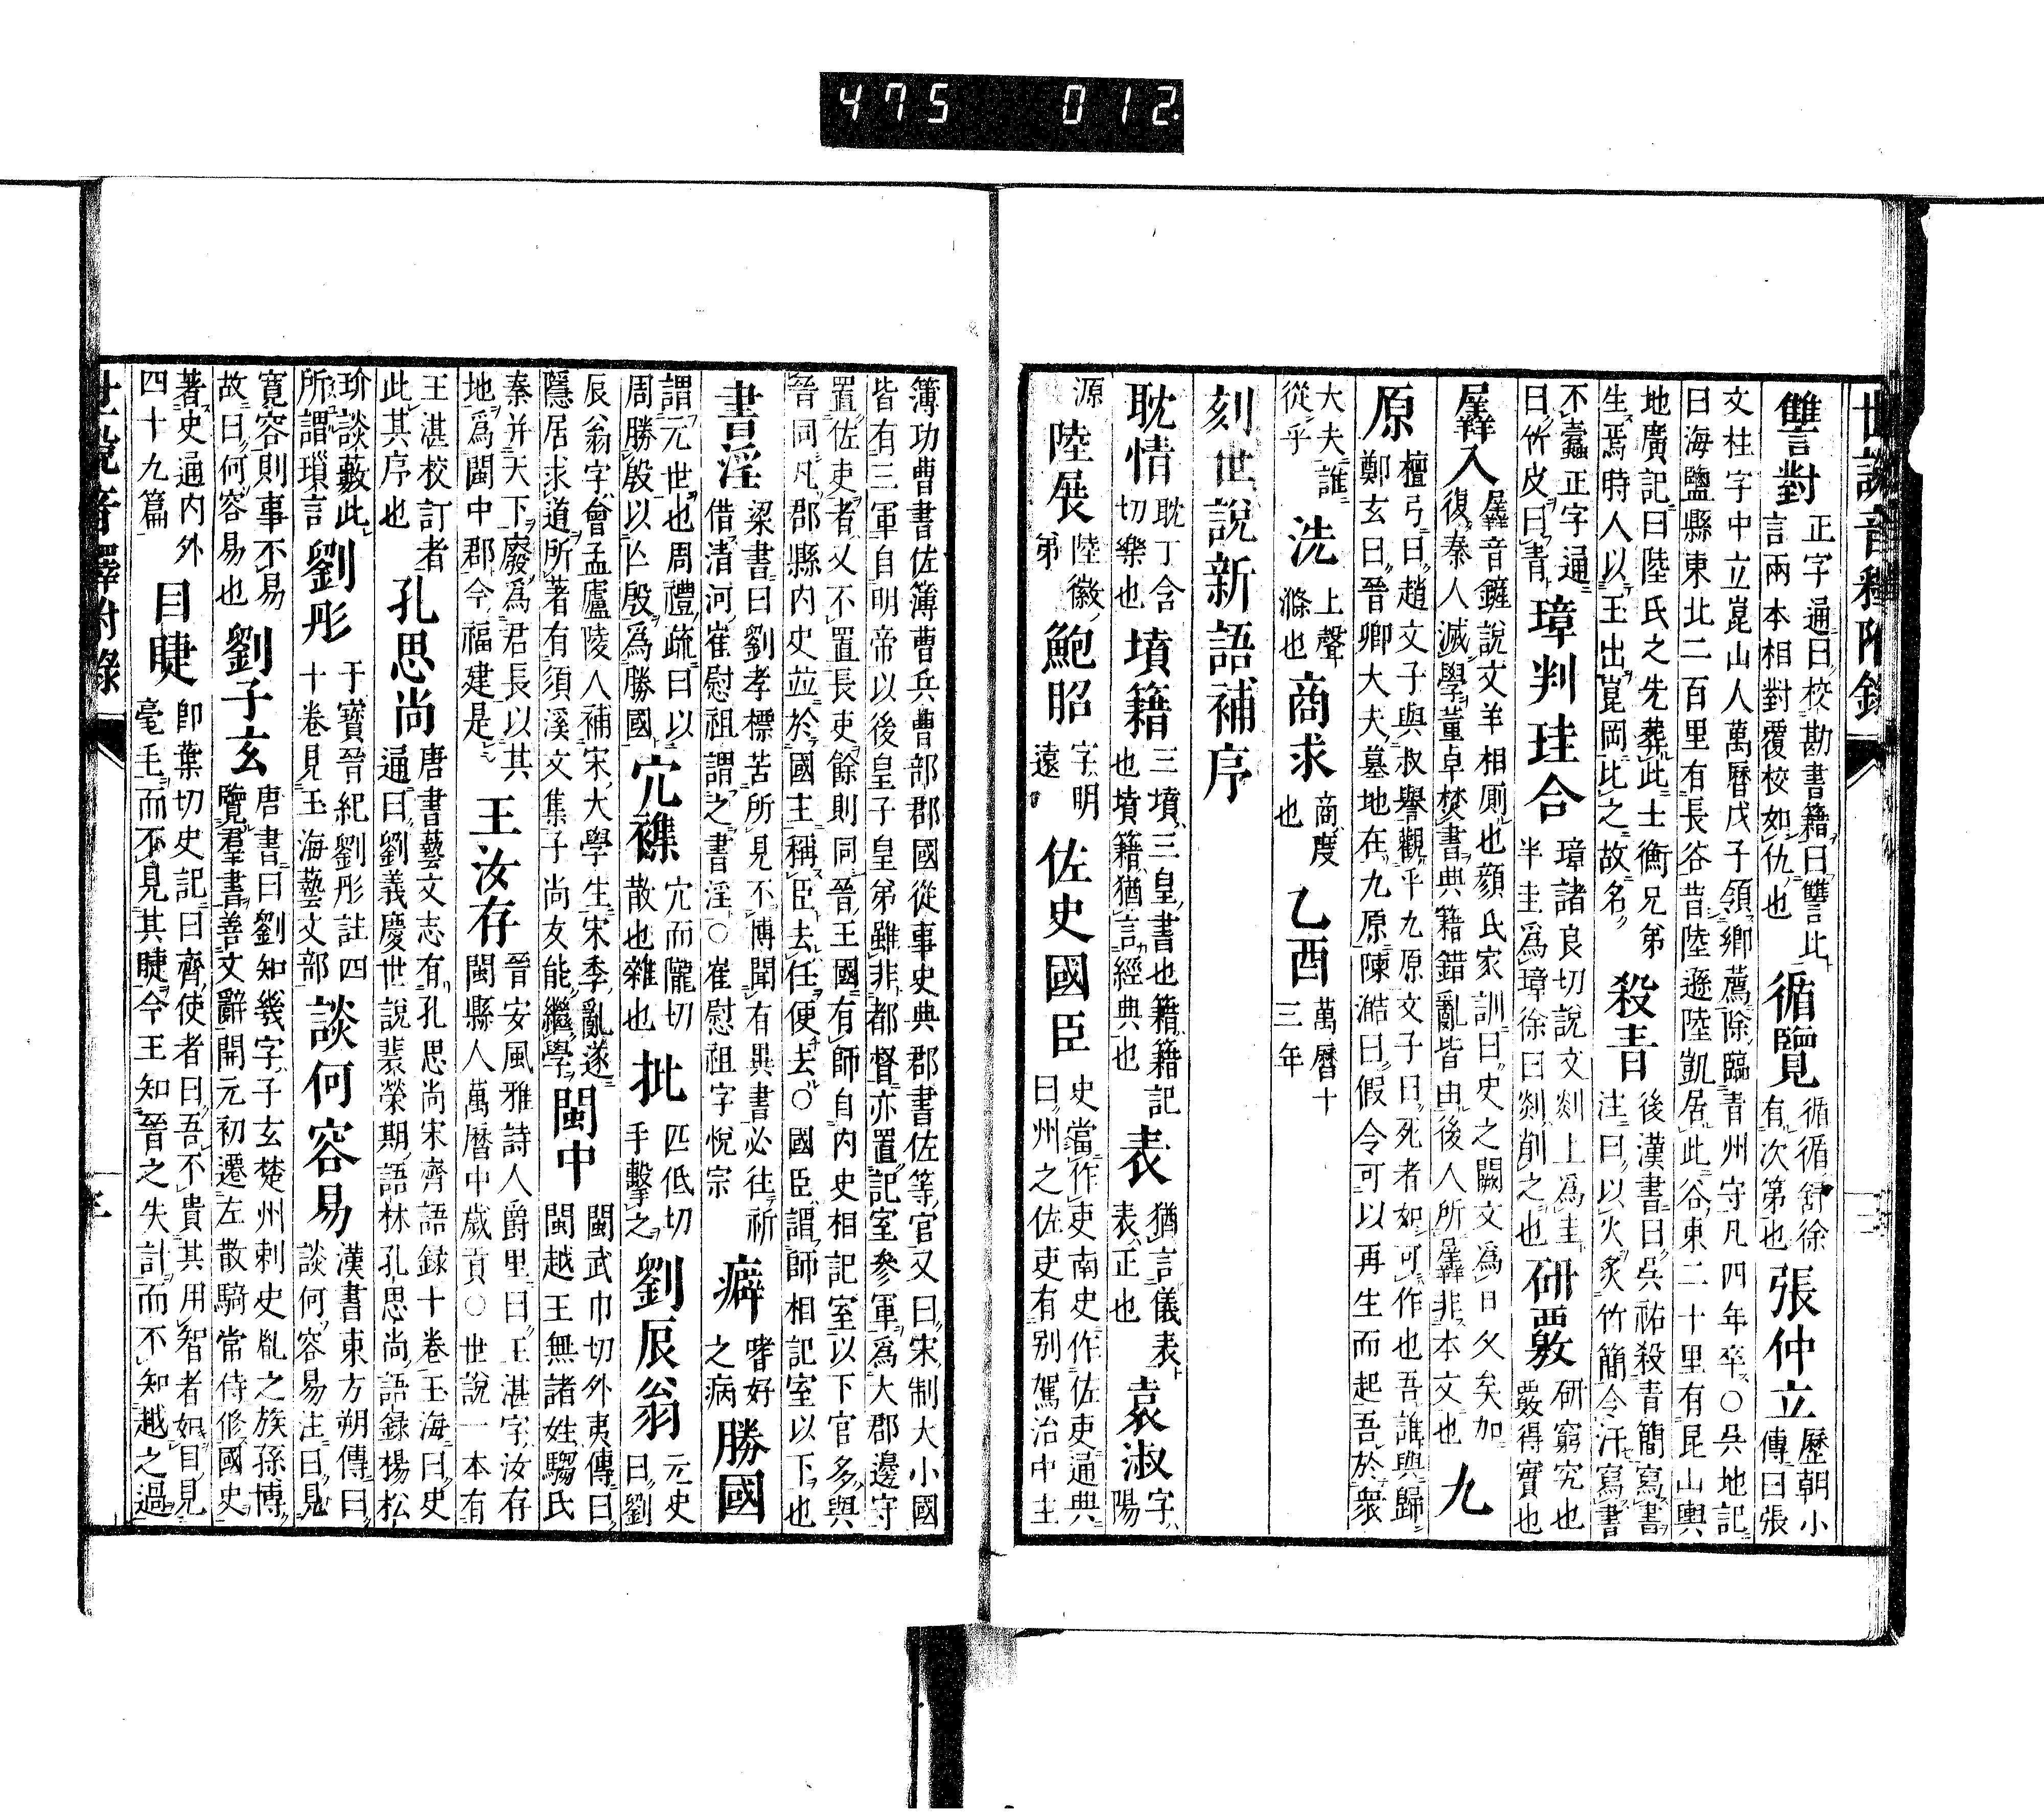 475 012
世說音釋附錄
讐對 正字通曰校勘書籍曰讐此言兩本相對覆校如仇也 循覽 循循舒徐有次第也 張仲立 歷朝小傳曰張
文柱字中立崑山人萬曆戊子領鄉薦除臨青州守凡四年卒○吳地記曰海鹽縣東北二百里有長谷昔陸遜陸凱居此谷東二十里有昆山輿
地廣記曰陸氏之先葬此士衡兄弟生焉時人以玉出崑岡比之故名 殺青 後漢書曰吳祐殺青簡寫書注曰以火炙竹簡令汗寫書
不蠹正字通曰竹皮曰青 璋判珪合 璋諸良切說文剡上為圭半圭為璋徐曰剡削之也 研覈 研窮究也覈得實也
羼入 羼音鏟說文羊相厠也顏氏家訓曰史之闕文為日久矣加復秦人滅學董卓焚書典籍錯亂皆由後人所羼非本文也 九
原 檀弓曰趙文子與叔譽觀乎九原文子曰死者如可作也吾誰與歸鄭玄曰晉卿大夫墓地在九原陳澔曰假令可以再生而起吾於衆
大夫誰從乎 洗 上聲滌也 商求 商度也 乙酉 萬曆十三年
刻世說新語補序
耽情 耽丁含切樂也 墳籍 三墳三皇書也籍籍記也墳籍猶言經典也 表 猶言儀表表正也 袁淑 字陽
源 陸展 陸徽弟 鮑昭 字明遠 佐史國臣 史當作吏南史作佐吏通典曰州之佐吏有別駕治中主
簿功曹書佐簿曹兵曹部郡國從事史典郡書佐等官又曰宋制大小國皆有三軍自明帝以後皇子皇弟雖非都督亦置記室參軍為大郡邊守
置佐吏者又不置長史餘則同晉王國有師自內史相記室以下官多與晉同凡郡縣內史並於國主稱臣去任便去○國臣謂師相記室以下也
書淫 梁書曰劉孝標苦所見不博聞有異書必往祈借清河崔慰祖謂之書淫○崔慰祖字悅宗 癖 嗜好之病 勝國
謂元世也周禮疏曰以周勝殷以亡殷為勝國 冗襍 冗而隴切散也雜也 批 匹低切手擊之 劉辰翁 元史曰劉
辰翁字會孟廬陵人補宋大學生宋季亂遂隱居求道所著有須溪文集子尚友能繼學 閩中 閩武巾切外夷傳曰閩越王無諸姓騶氏
秦并天下廢為君長以其地為閩中郡今福建是 王汝存 晉安風雅詩人爵里曰王湛字汝存閩縣人萬曆中歲貢○世說一本有
王湛校訂者此其序也 孔思尚 唐書藝文志有孔思尚宋齊語錄十卷玉海曰史通曰劉義慶世說裴榮期語林孔思尚語錄楊松
玠談藪此所謂瑣言 劉彤 于寶晉紀劉彤註四十卷見玉海藝文部 談何容易 漢書東方朔傳曰談何容易注曰見
寬容則事不易故曰何容易也 劉子玄 唐書曰劉知幾字子玄楚州刺史胤之族孫博覽羣書善文辭開元初遷左散騎常侍修國史
著史通內外四十九篇 目睫 卽葉切史記曰齊使者曰吾不貴其用智者如目見毫毛而不見其睫今王知晉之失計而不知越之過
世說音釋附錄